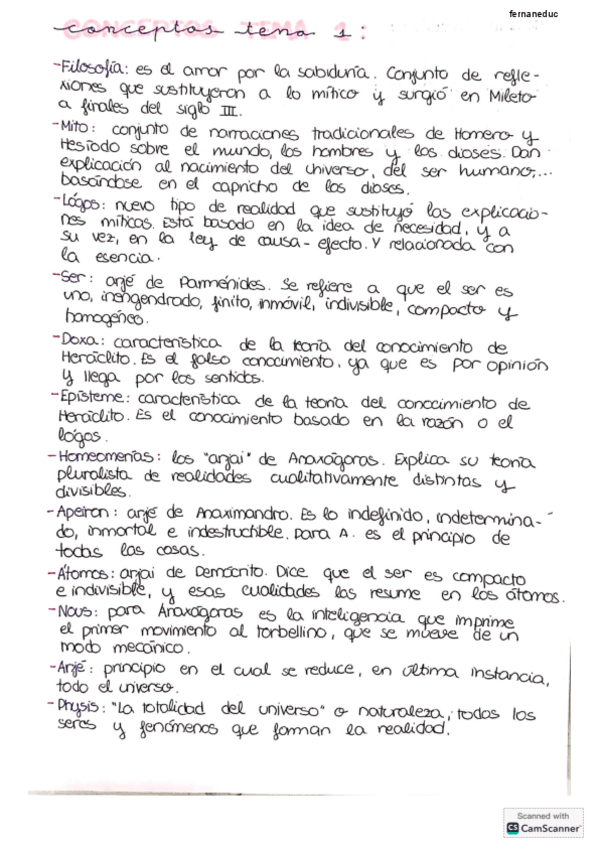 fernaneduc
conceptos tema 1:
-Filosofía: es el amor por la sabiduría. Conjunto de refle-
xiones que sustituyeron a lo mítico y surgió en Mileto
a finales del siglo III.
-Mito: conjunto de narraciones tradicionales de Homero y
Hesíodo sobre el mundo, los hombres y los dioses. Dan
explicación al nacimiento del Universo, del ser humano,...
basándose en el capricho de los dioses.
-Lógos: nuevo tipo de realidad que sustituyó las explicacio-
nes míticas. Está basado en la idea de necesidad, y a
su vez, en la ley de causa-efecto. Y relacionada con
la esencia.
-Ser: arjé de Parménides. Se refiere a que el ser es
uno, inengendrado, finito, inmóvil, indivisible, compacto y
homogéneo.
-Doxa: característica de la teoría del conocimiento de
Heráclito. Es el falso conocimiento, ya que es por opinión
y llega por los sentidos.
-Episteme: característica de la teoría del conocimiento de
Heráclito. Es el conocimiento basado en la razón o el
lógos.
-Homeomerías: los "arjai" de Anaxágoras. Explica su teoría
pluralista de realidades cualitativamente distintas y
divisibles.
-Apeiron: arjé de Anaximandro. Es lo indefinido, indetermina-
do, inmortal e indestructible. Para A. es el principio de
todas las cosas.
-Átomos: arjai de Demócrito. Dice que el ser es compacto
e indivisible, y esas cualidades las resume en los átomos.
-Nous: para Anaxágoras es la inteligencia que imprime
el primer movimiento al torbellino, que se mueve de un
modo mecánico.
-Arjé: principio en el cual se reduce, en última instancia,
todo el universo.
-Physis: "La totalidad del universo" o naturaleza, todos los
seres y fenómenos que forman la realidad.
Scanned with
CS CamScanner